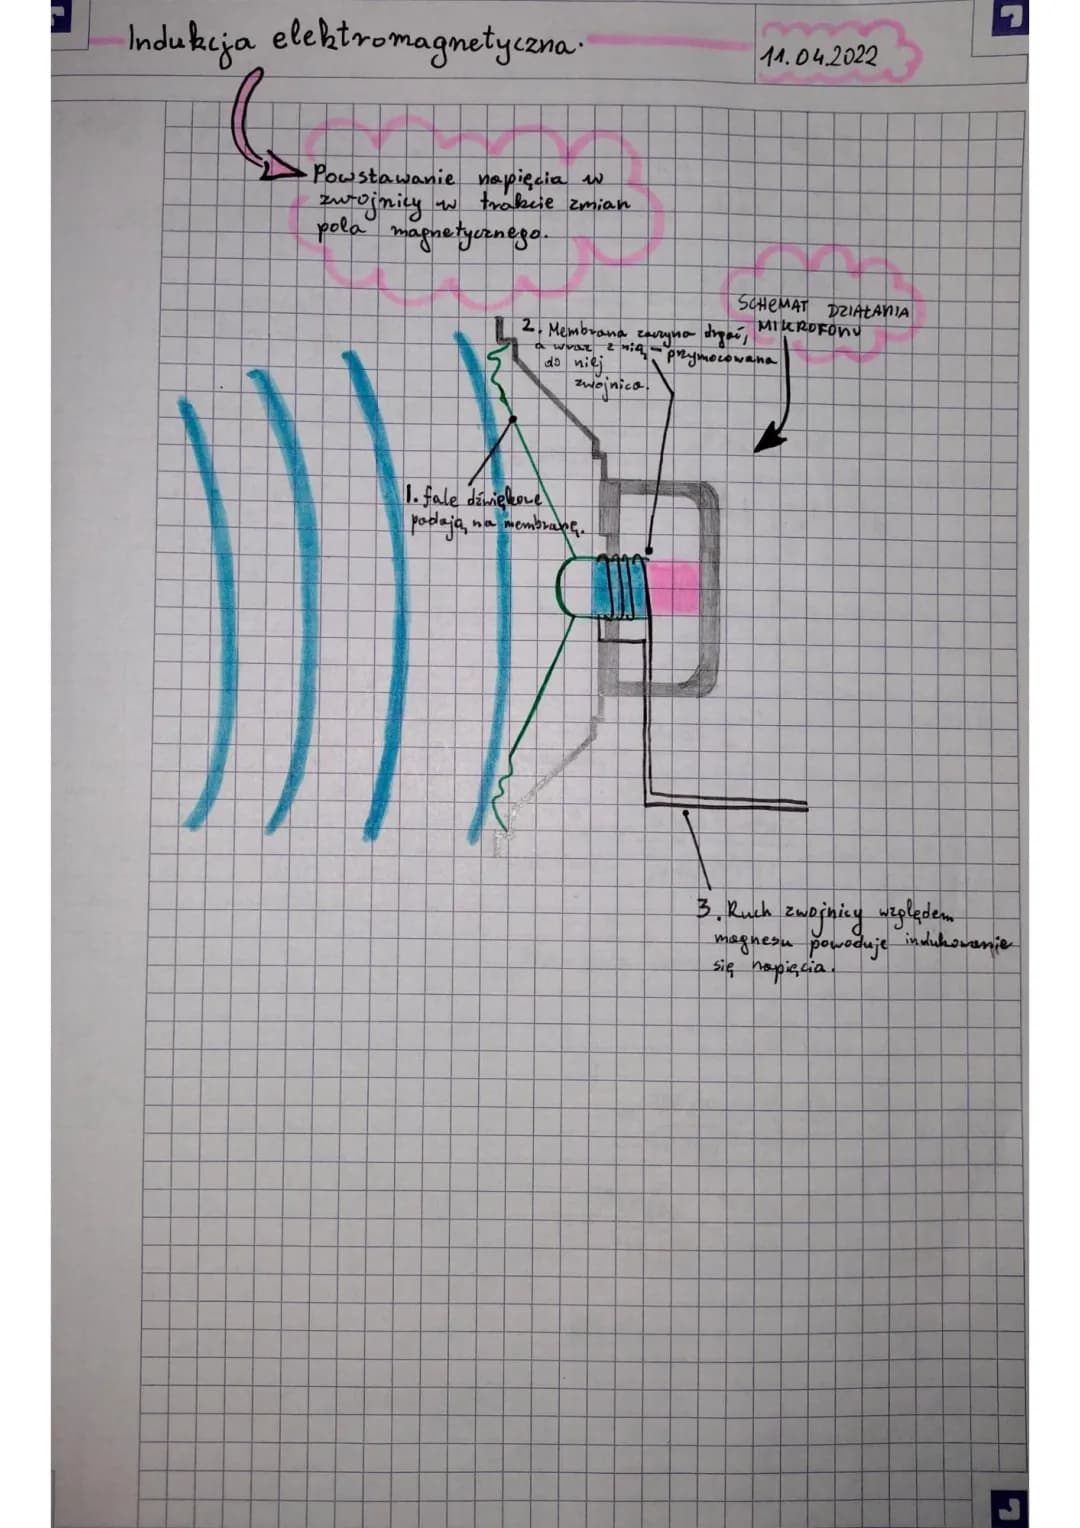 Indukcja elektromagnetyczna.
11.04.2022
Powstawanie napięcia w
zwojnicy w trakcie zmian
pola magnetycznego.
SCHEMAT DZIAŁANIA
MIKROFONU
2. Membrana zaczyna drgać,
a wraz z nią - przymocowana
do niej
zwojnica.
1. fale dźwiękowe
padają na membranę.
3. Ruch zwojnicy względem
magnesu powoduje indukowanie
się napięcia.